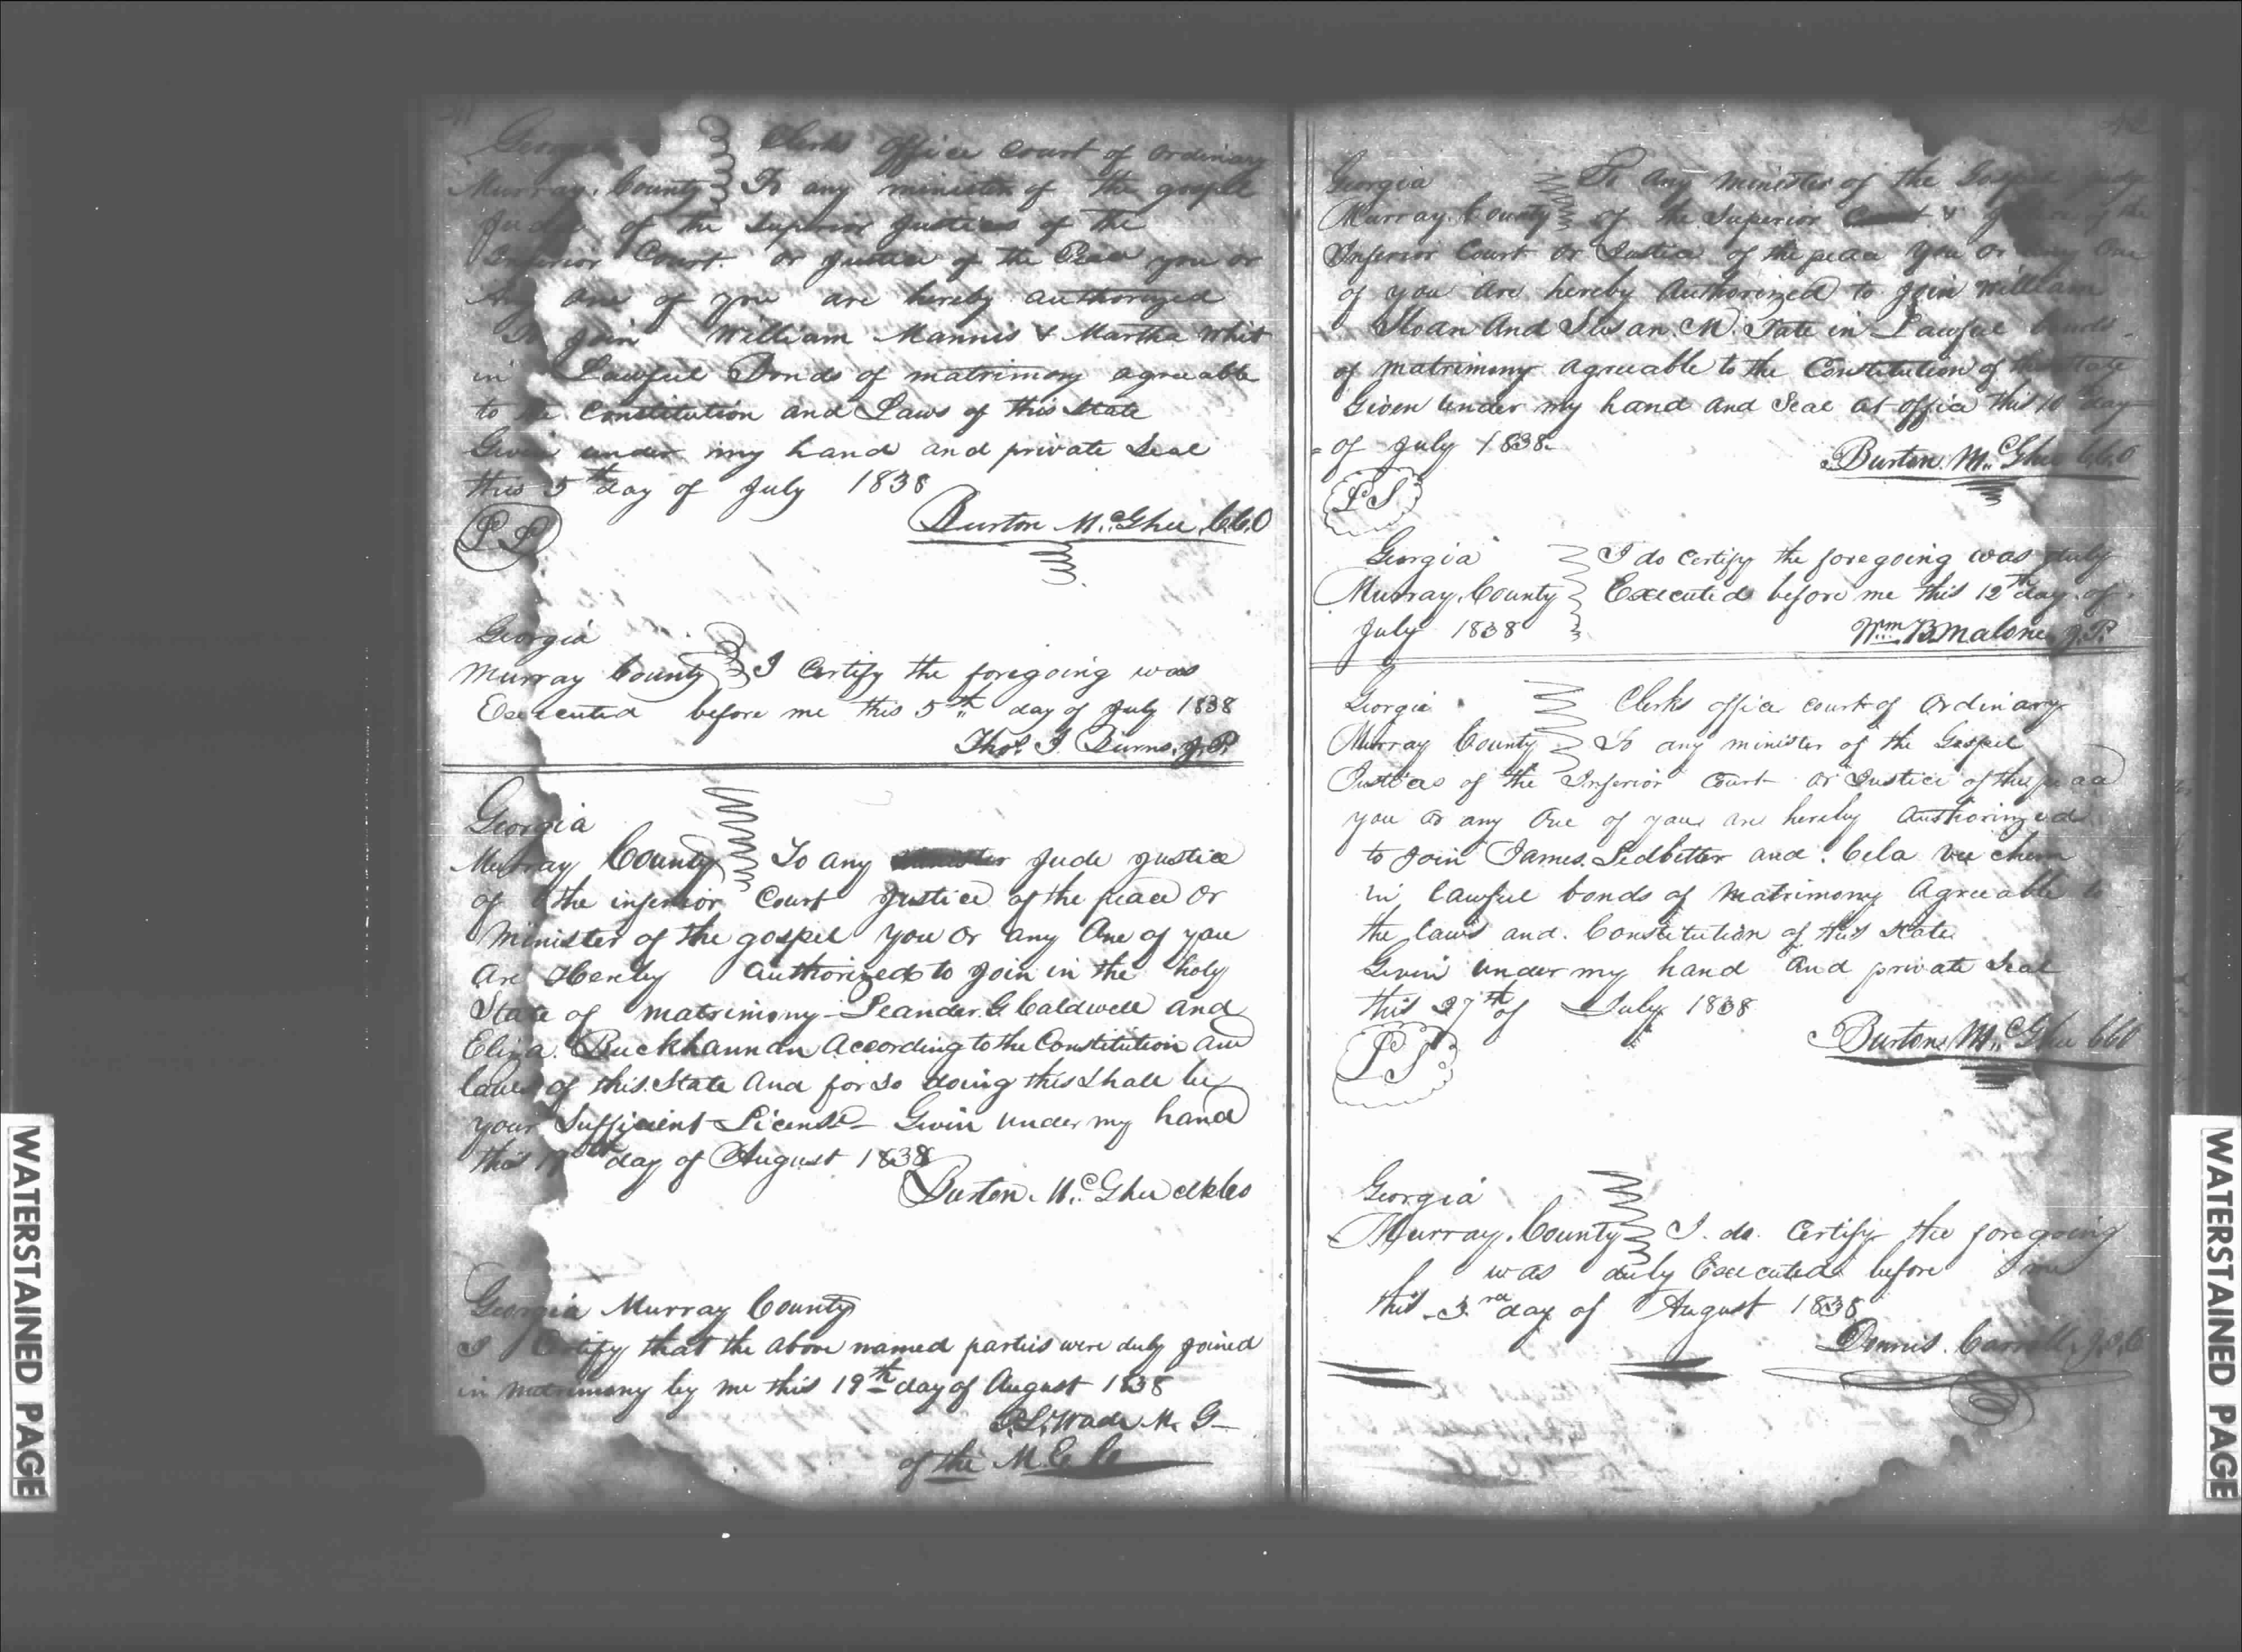 Georgia Clerks office court of ordinary
Murray County To any minister of the gosple
Judge of the Superior Justices of the
Inferior Court or Justice of the Peace you or
Any one of you are hereby authorized
To Join William Mannis & Martha Whit
in Lawful Bonds of matrimony agreeable
to the Constitution and Laws of this State
Given under my hand and private Seal
this 5th day of July 1838
Burton Mc Ghee C.C.O
L S
Georgia
Murray County I Certify the foregoing was
Executed before me this 5th day of July 1838
Thos. J. Burns J.P.
Georgia
Murray County To any Jude Justice
of the inferior Court Justice of the peace Or
Minister of the gospel you Or any One of you
Are Hereby Authorized to Join in the holy
State of matrimony Leander G Caldwell and
Eliza Buckhannan According to the Constitution and
laws of this State And for So doing this Shall be
your Sufficient License Givin under my hand
this day of August 1838
Burton Mc Ghee
Georgia Murray County
I Certify that the above named parties were duly Joined
in matrimony by me this 19th day of August 1838
Wade M. G
of the M E C
42
Georgia To Any Minister of the Gospel Judge
Murray County of the Superior Court of the
Inferior Court Or Justice of the peace You Or any One
of you Are hereby Authorized to Join William
Sloan And Susan M. Tate in Lawful bonds
of matrimony agreeable to the Constitution of the State
Given Under my hand And Seal at office this 10th day
of July 1838
Burton Mc Ghee C.C.O
L S
Georgia I do Certify the foregoing was duly
Murray County Executed before me this 12th day of
July 1838 Wm B Malone J.P.
Georgia Clerks office court of Ordinary
Murray County To any minister of the Gospel
Justices of the Inferior Court Or Justice of the peace
you or any One of you are hereby Authorinzed
to Join James Ledbetter and Cela
in lawful bonds of Matrimony Agreeable to
the laws and Constitution of this State
Givin Under my hand And private Seal
this 27th of July 1838
Burton Mc Ghee CCO
L S
Georgia
Murray County I do Certify the foregoing
was duly Executed before me
this 3rd day of August 1838
Dennis Carroll J.I.C
WATERSTAINED PAGE
WATERSTAINED PAGE